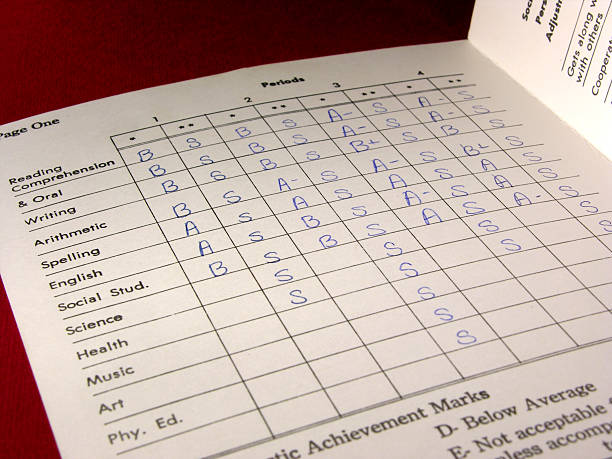 Page One
Periods
1 2 3 4
* ** * ** * ** * **
Reading B S B S A- S A- S
Comprehension B S B S A- S A- S
& Oral B S B S B+ S B S
Writing B S A- S A- S B+ S
Arithmetic A S A S A S A S
Spelling A S B S A- S A S
English B S B S A S A- S
Social Stud. S S S S
Science S S S S
Health S
Music S
Art
Phy. Ed.
Achievement Marks
D- Below Average
E- Not acceptable
Gets along
with others